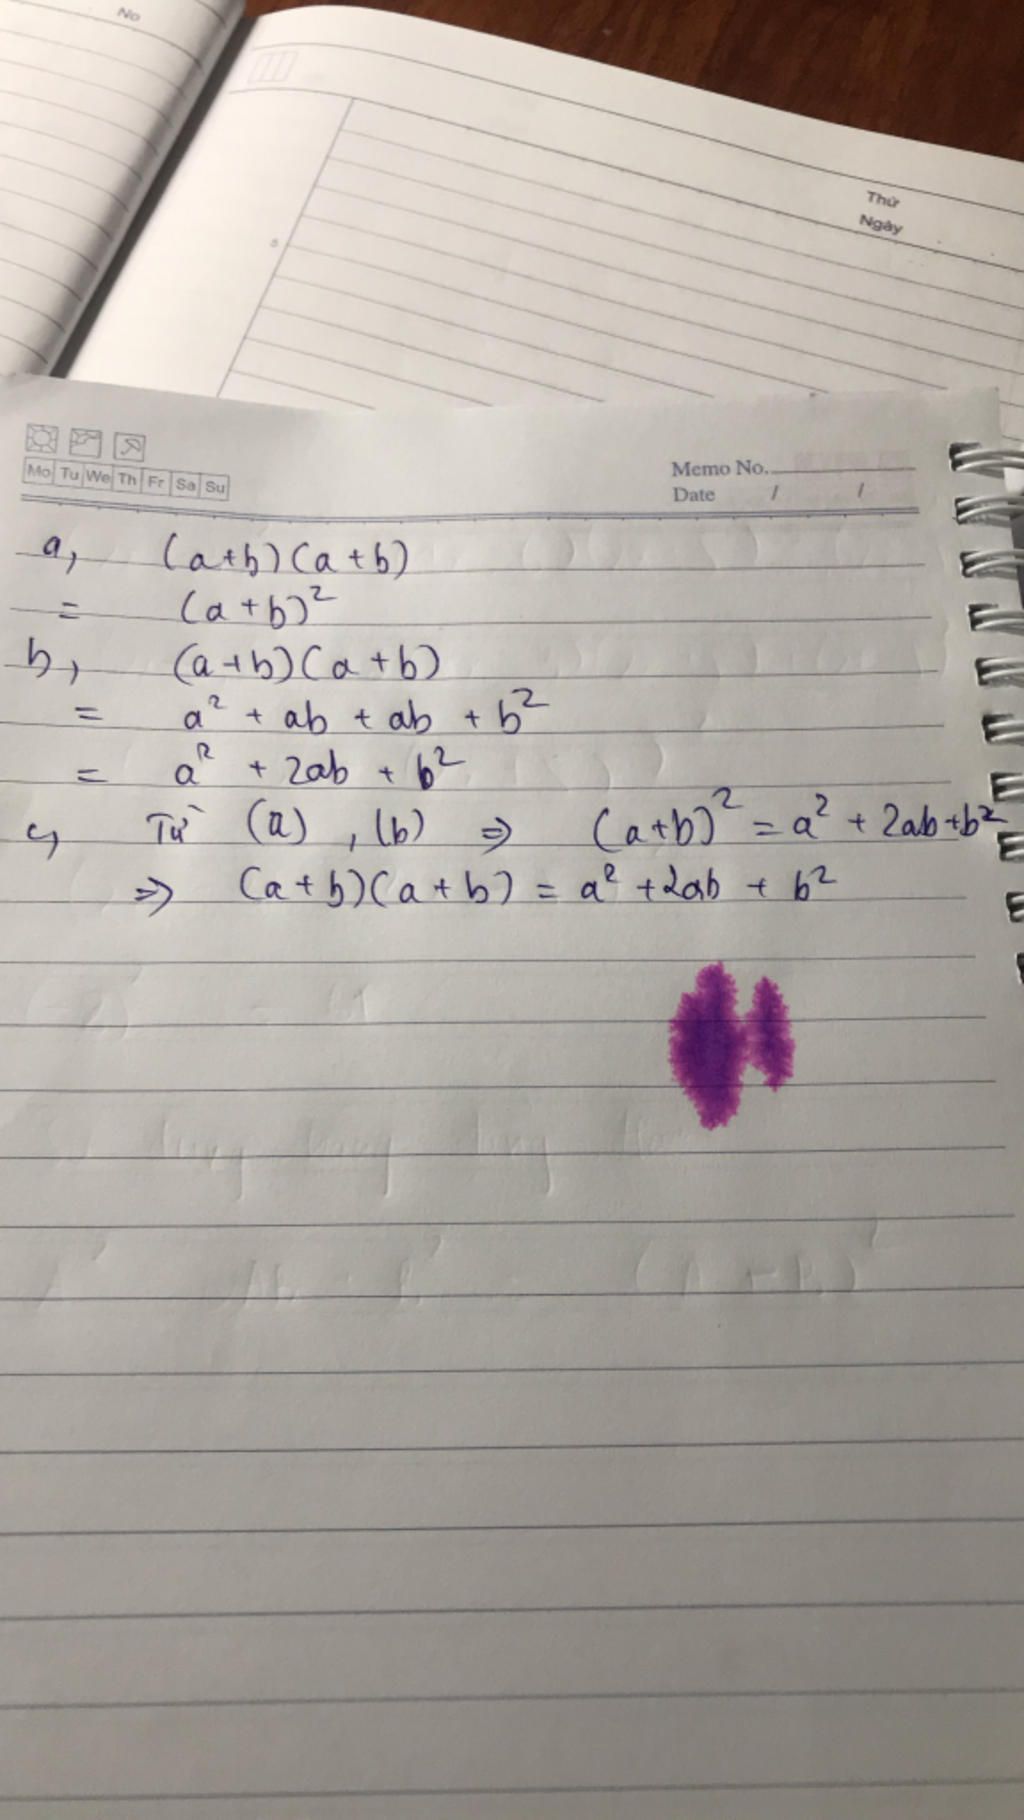 No
Thứ
Ngày
5
Mo Tu We Th Fr Sa Su
Memo No.
Date / /
a, (a+b)(a+b)
= (a+b)²
b, (a+b)(a+b)
= a² + ab + ab + b²
= a² + 2ab + b²
c, Từ (a), (b) ⇒ (a+b)² = a² + 2ab+b²
⇒ (a+b)(a+b) = a² +2ab + b²